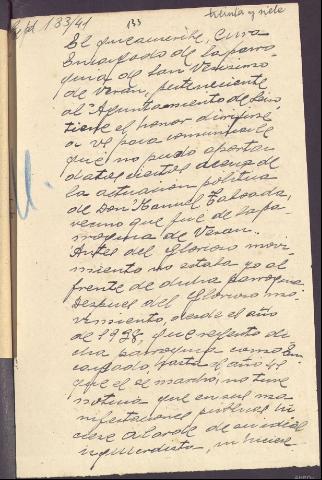 Expd 133/41
133
treinta y siete
El que suscribe, Cura
Encargado de la parro-
quia de San Verisimo
de        perteneciente
al Ayuntamiento de
tiene el honor dirigirse
a V. para comunicarle
que no puedo aportar
datos ciertos acerca de
la actuacion politica
de Don Manuel Taboada,
vecino que fue de la pa-
rroquia de
Antes del Glorioso movi-
miento no estaba yo al
frente de dicha parroquia
Despues del Glorioso mo-
vimiento, desde el año
de 1938, que regento di-
cha parroquia como En-
cargado, hasta el año 41
que el se marchó, no tuve
noticia que en sus ma-
nifestaciones publicas hi-
ciese alarde de su ideal
izquierdista, ni hiciese